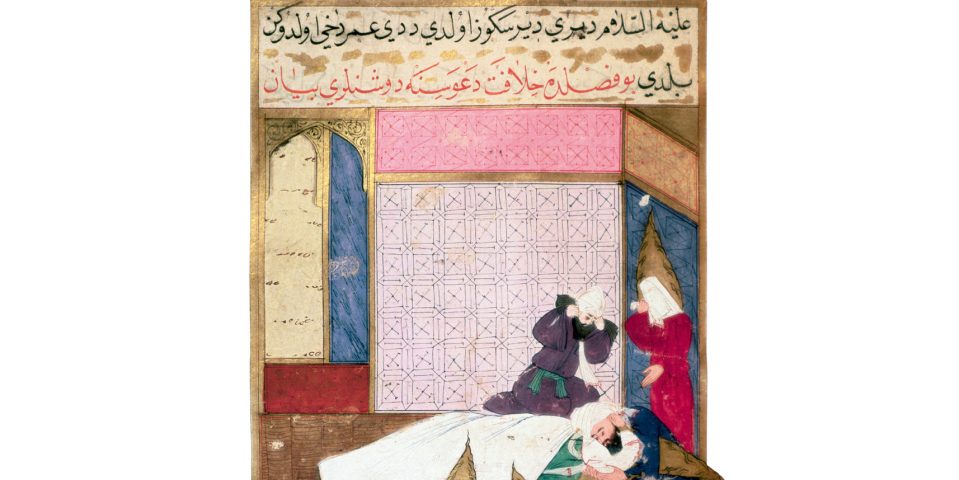 عليه السلام ديري دير سكوز اولدي ددي عمر دخي اولدوكن
بلدي بو فضلده خلافت دعوسنه دوشنلري بيان